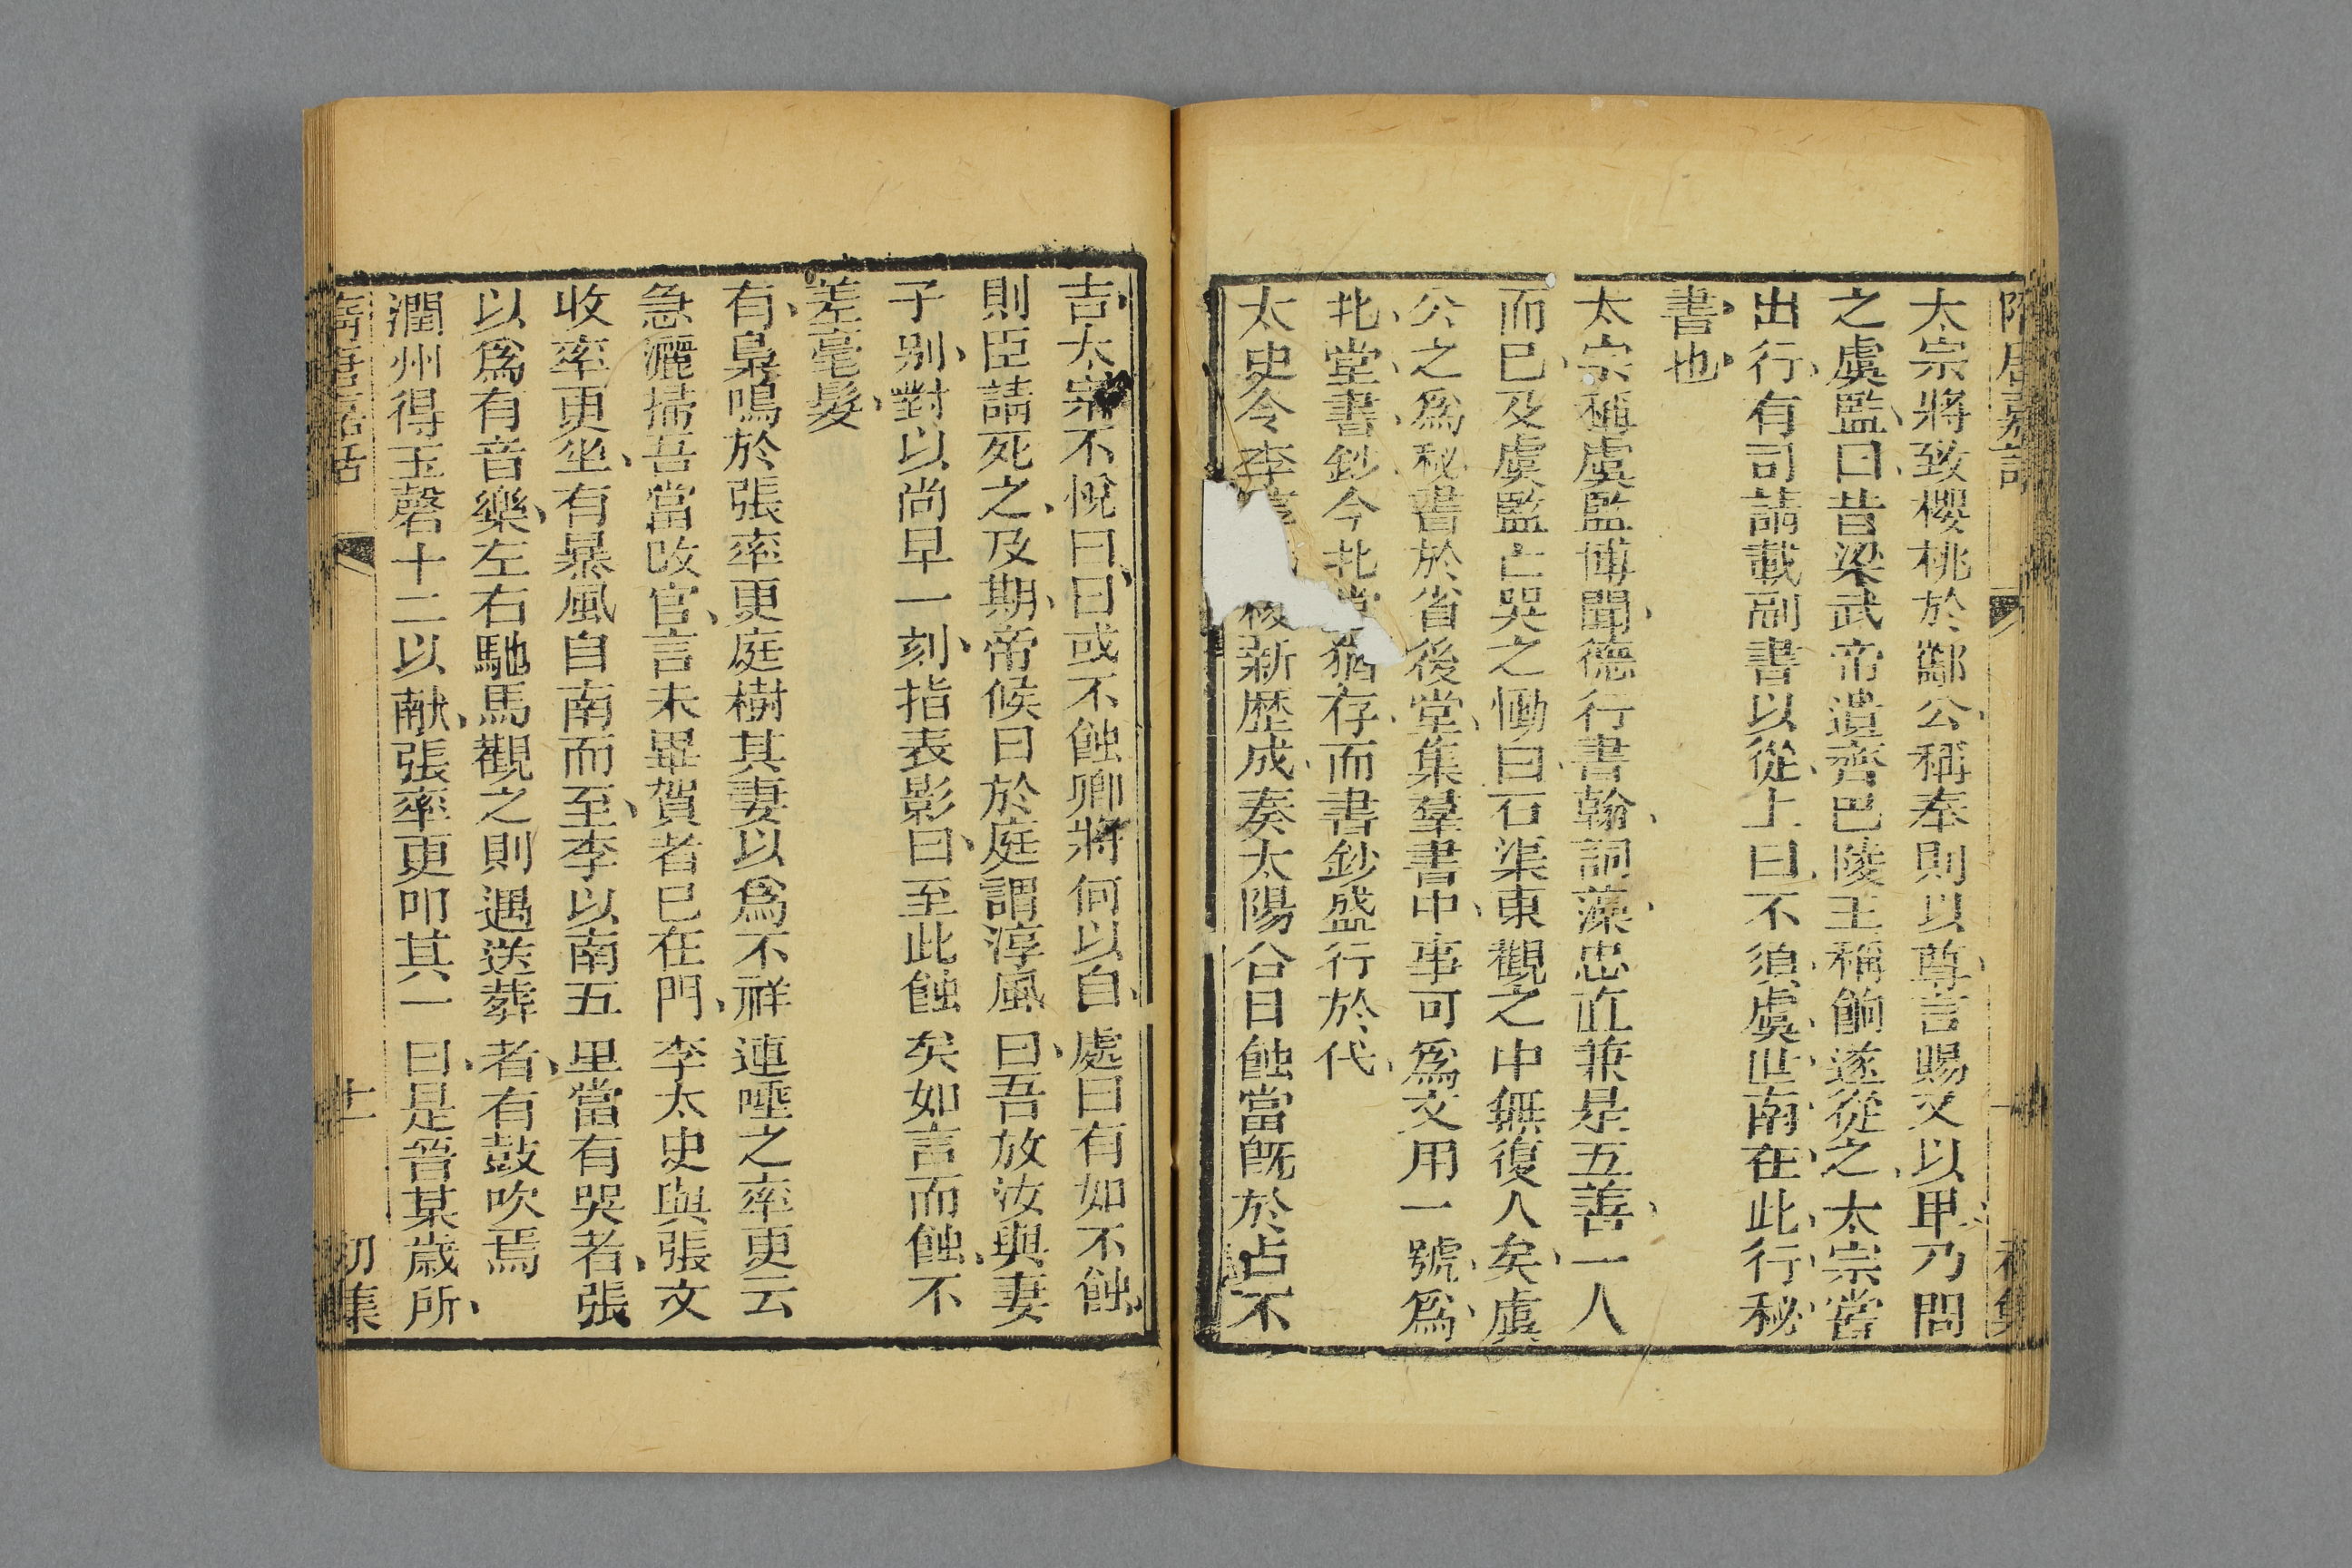 太宗將致櫻桃於酅公、稱奉則以尊、言賜又以卑、乃問
之虞監、曰、昔梁武帝遺齊巴陵王稱餉、遂從之、太宗嘗
出行、有司請載副書以從、上曰、不須、虞世南在此行秘
書也
太宗稱虞監博聞、德行書翰、詞藻、忠直兼是五善、一人
而已、及虞監亡哭之慟曰、石渠東觀之中無復人矣、虞
公之爲秘書於省後堂、集羣書中、事可爲文用一號、爲
北堂書鈔、今北堂猶存、而書鈔盛行於代、
太史令李新歷成、奏太陽合日蝕當旣於占不
吉、太宗不悅曰、日或不蝕卿將何以自處曰有如不蝕、
則臣請死之、及期、帝候日於庭謂淳風曰、吾放汝與妻
子別、對以尚早一刻、指表影曰、至此蝕矣如言而蝕、不
差毫髮、
有梟鳴於張率更庭樹其妻以爲不祥連唾之率更云
急灑掃吾當改官、言未畢賀者已在門、李太史與張文
收率更坐、有暴風自南而至、李以南五里當有哭者、張
以爲有音樂、左右馳馬觀之則遇送葬者、有鼓吹焉
潤州得玉磬十二以獻、張率更叩其一曰、是晉某歲所、
十一
初集